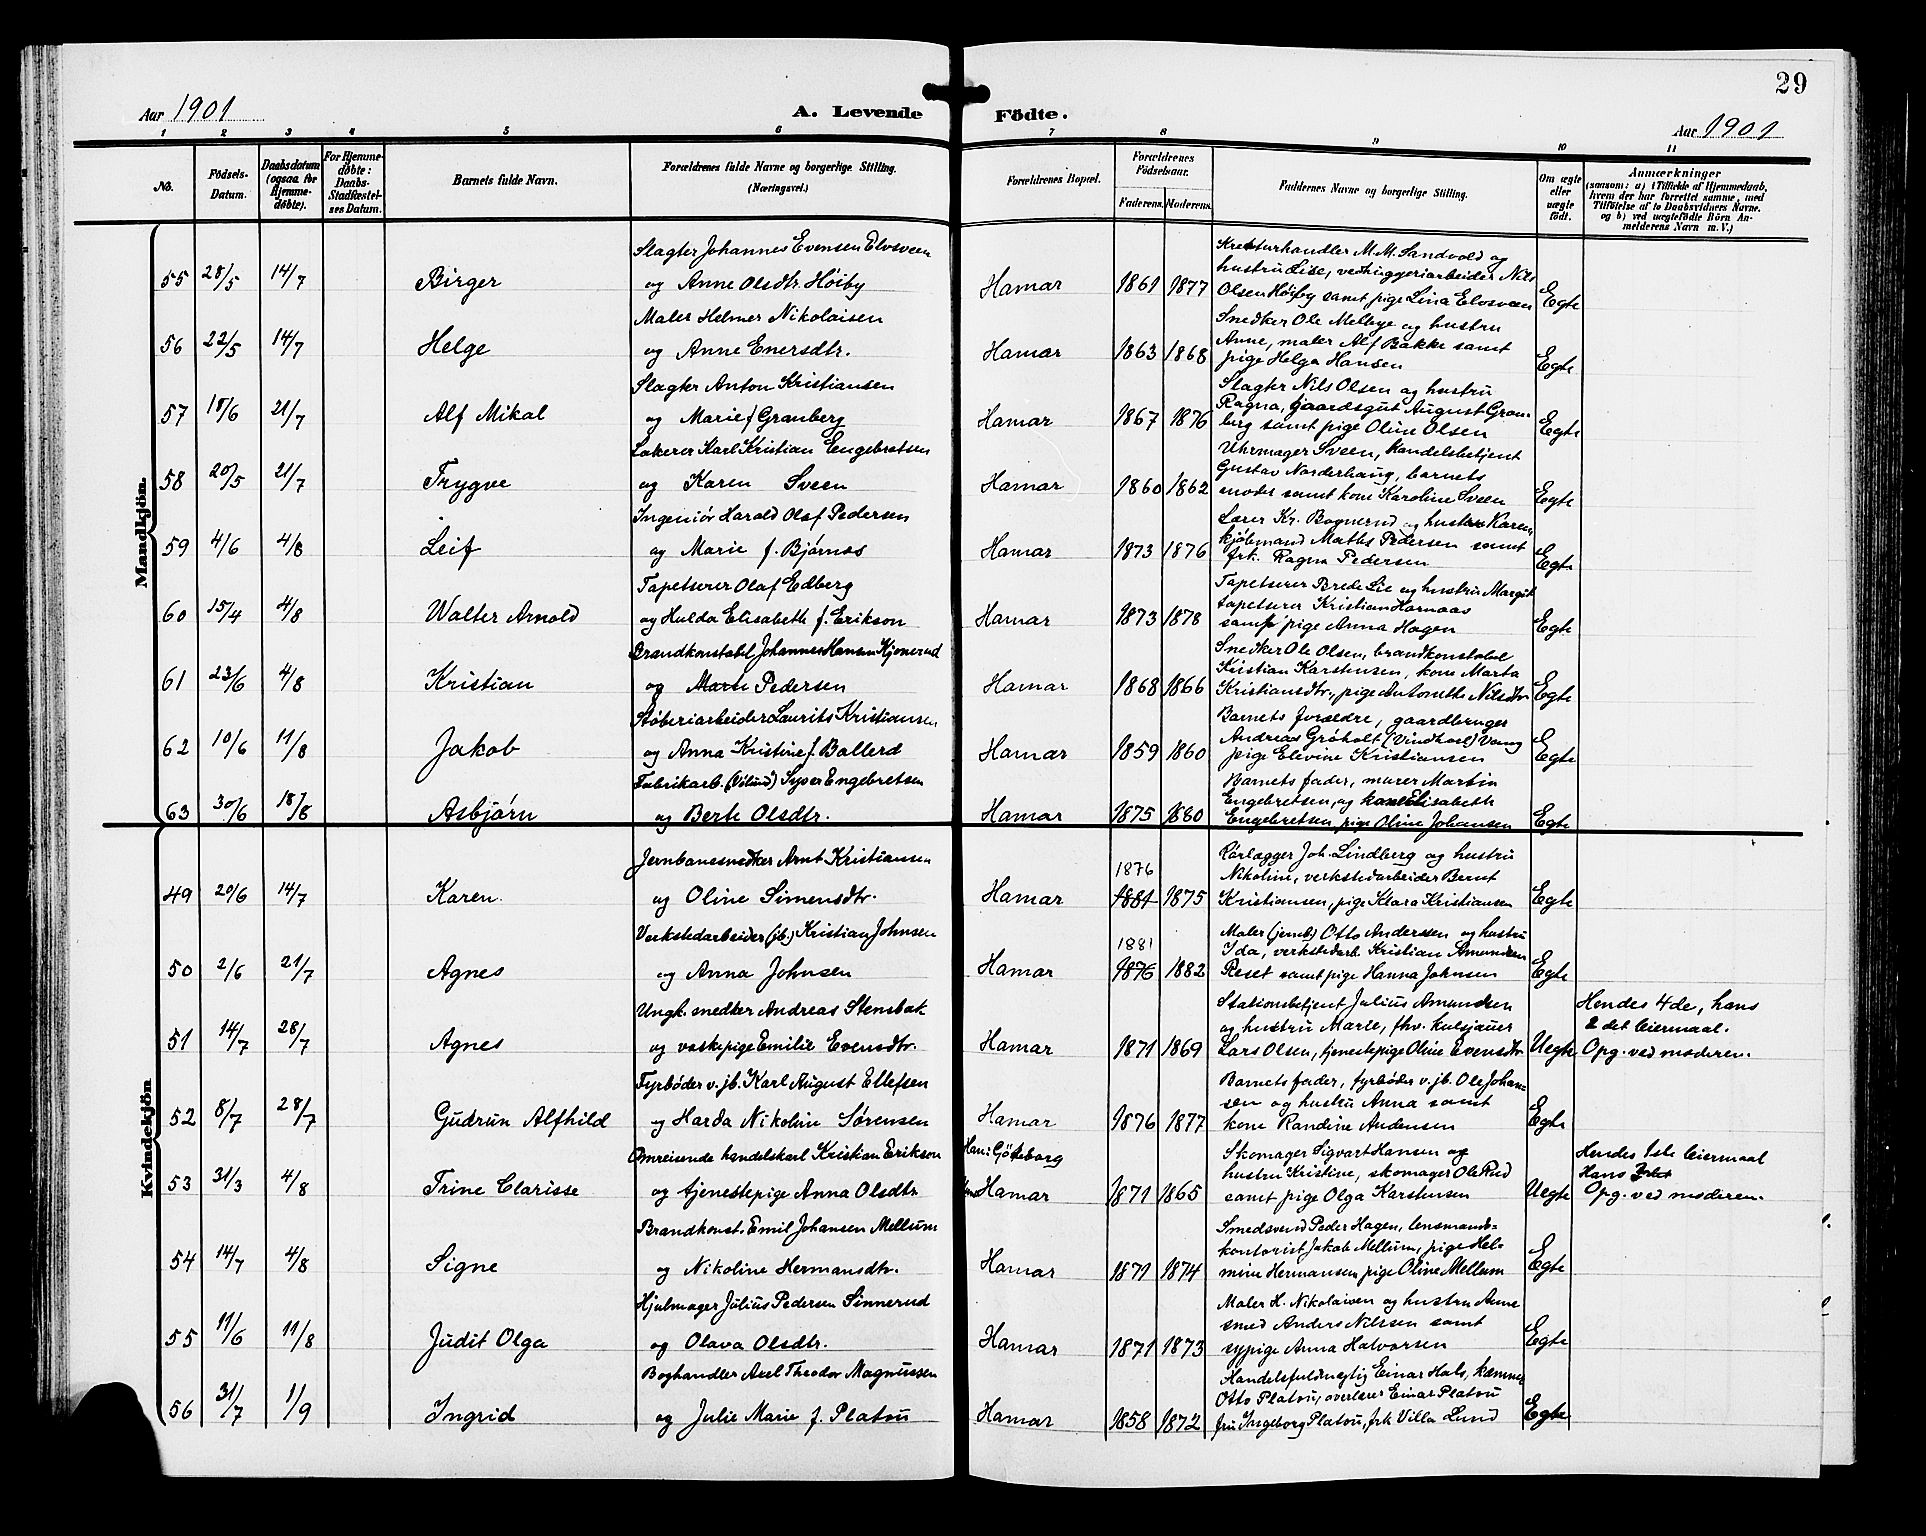 29
Aar 1901
A. Levende Födte.
Aar 1901
1 2 3 4 5 6 7 8 9 10 11
No.
Fødsels-Datum.
Daabsdatum (ogsaa for Hjemmedøbte).
For Hjemmedøbte: Daabs-Stadfæstelses Datum.
Barnets fulde Navn.
Forældrenes fulde Navne og borgerlige Stilling. (Næringsvei.)
Forældrenes Bopæl.
Forældrenes Födselsaar.
Faderens. Moderens.
Faddernes Navne og borgerlige Stilling.
Om ægte eller uægte født.
Anmærkninger (saasom: a) i Tilfælde af Hjemmedaab, hvem der har forrettet samme, med Tilföielse af to Daabsvidners Navne, og b) ved uægtefödte Börn Anmelderens Navn m. V.)
Mandkjön.
Slagter Johannes Evensen Elvsveen
55 28/5 14/7 Birger og Anne Olsdtr. Höiby Hamar 1861 1877
Kreaturhandler M. M. Sandvold og
hustru Lise, vedhuggeriarbeider Nils
Olsen Höiby samt pige Lina Elvsveen Egte
Maler Helmer Nikolaisen
56 22/5 14/7 Helge og Anne Enersdtr. Hamar 1863 1868
Snedker Ole Melbye og hustru
Anne, maler Alf Bakke samt
pige Helga Hansen Egte
Slagter Anton Kristiansen
57 18/6 21/7 Alf Mikal og Marie f. Granberg Hamar 1867 1876
Slagter Nils Olsen og hustru
Ragna, gaardsgut August Gran-
berg samt pige Oline Olsen Egte
Lakerer Karl Kristian Engebretsen
58 20/5 21/7 Trygve og Karen Sveen Hamar 1860 1862
Uhrmager Sveen, handelsbetjent
Gustav Norderhaug, barnets
moder samt kone Karoline Sveen Egte
Ingeniör Harald Olaf Pedersen
59 4/6 4/8 Leif og Marie f. Bjørnas Hamar 1873 1876
Lærer Kr. Bognerud og hustru Karen
kjöbmand Maths Pedersen samt
frk. Ragna Pedersen Egte
Tapetserer Olaf Edberg
60 15/4 4/8 Walter Arnold og Hulda Elisabeth f. Erikson Hamar 1873 1878
Tapetserer Brede Lie og hustru Margit
tapetserer Kristian Hornaas
samt pige Anna Hagen Egte
Brandkonstabel Johannes Hansen Kjonerud
61 23/6 4/8 Kristian og Marte Pedersen Hamar 1868 1866
Snedker Ole Olsen, brandkonstabel
Kristian Karstensen, kone Marta
Kristiansdtr., pige Antonette Nilsdtr Egte
Støberiarbeider Laurits Kristiansen
62 10/6 11/8 Jakob og Anna Kristine f. Ballerd Hamar 1859 1860
Barnets forældre, gaardbruger
Andreas Gröholt (Vindkarl) Vang
pige Elevine Kristiansen Egte
Fabrikarb. (Vølund) Syver Engebretsen
63 30/6 18/8 Asbjørn og Berte Olsdtr. Hamar 1875 1880
Barnets fader, murer Martin
Engebretsen, og kone Elisabeth
Engebretsen, pige Oline Johansen Egte
Kvindekjön
Jernbanesnedker Arnt Kristiansen
49 20/6 14/7 Karen. og Oline Simensdtr. Hamar 1876 1881 1875
Rörlægger Joh. Lindberg og hustru
Nikoline, verkstedarbeider Bernt
Kristiansen, pige Klara Kristiansen Egte
Verkstedarbeider (jb.) Kristian Johnsen
50 2/6 21/7 Agnes og Anna Johnsen Hamar 1881 1876 1882
Maler (jernb) Otto Anderssen og hustru
Ida, verkstedarb. Kristian Amundsen
Reset samt pige Hanna Johnsen Egte
Ungk. snedker Andreas Stensbak
51 14/7 28/7 Agnes og vaskepige Emilie Evensdtr. Hamar 1871 1869
Stationsbetjent Julius Amundsen
og hustru Marie, fhv. kulsjauer
Lars Olsen, tjenestepige Oline Evensdtr Uegte
Hendes 4de, hans
2 det leiermaal.
Opg. ved moderen.
Fyrbøder v. jb. Karl August Ellefsen
52 8/7 28/7 Gudrun Alfhild og Harda Nikoline Sørensen Hamar 1876 1877
Barnets fader, fyrbøder v. jb. Ole Johan-
sen og hustru Anna samt
kone Randine Andensen Egte
Omreisende handelskarl Kristian Erikson
53 31/3 4/8 Trine Clarisse og tjenestepige Anna Olsdtr Han: Göteborg Hamar 1871 1865
Skomager Sigvart Hansen og
hustru Kristine, skomager Ole Rud
samt pige Olga Karstensen Uegte
Hendes 1ste leiermaal
Hans
Opg. ved moderen.
Brandkonst. Emil Johansen Mellum
54 14/7 4/8 Signe og Nikoline Hermansdtr. Hamar 1871 1874
Smedsvend Peder Hagen, lensmands-
kontorist Jakob Mellum, pige Hel-
mine Hermansen pige Oline Mellum Egte
Hjulmager Julius Pedersen Sinnerud
55 11/6 11/8 Judit Olga og Olava Olsdtr. Hamar 1871 1873
Maler H. Nikolaisen og hustru Anne
smed Anders Nilssen samt
sypige Anna Halvorsen Egte
Boghandler Axel Theodor Magnussen
56 31/7 1/9 Ingrid og Julie Marie f. Platou Hamar 1858 1872
Handelsfuldmægtig Einar Hals, kæmner
Otto Platou, overlærer Einar Platou
fru Ingeborg Platou, frk Villa Lund Egte